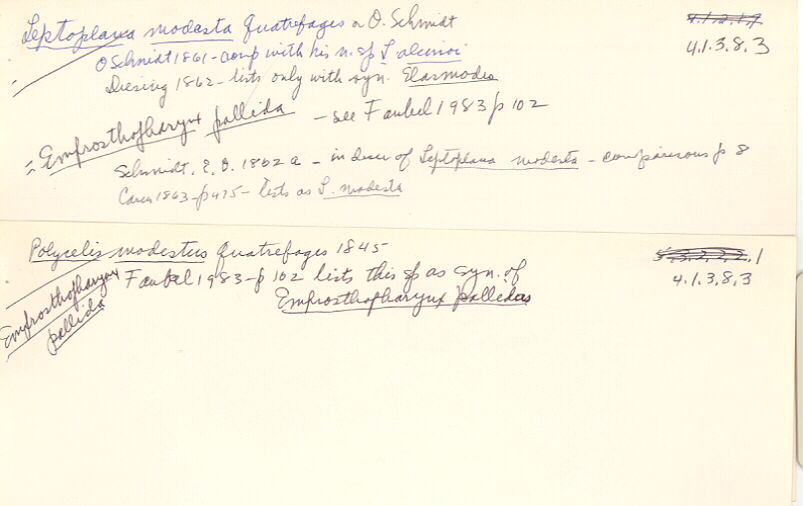 Leptoplana modesta Quatrefages or O. Schmidt
O Schmidt 1861 - comp with his n. sp L alcinoi
4.1.3.8.3
Diesing 1862 - lists only with syn. Elasmodes
= Emprosthopharynx pallida - see Faubel 1983 p 102
Schmidt, E. O. 1862 a - in discr of Leptoplana modesta - comparisons p 8
Carus 1863 - p 475 - lists as L. modesta
Polycelis modestus Quatrefages 1845
.1
Faubel 1983 - p 102 lists this sp as syn. of
4.1.3.8.3
Emprosthopharynx pallidus
= Emprosthopharynx
pallida